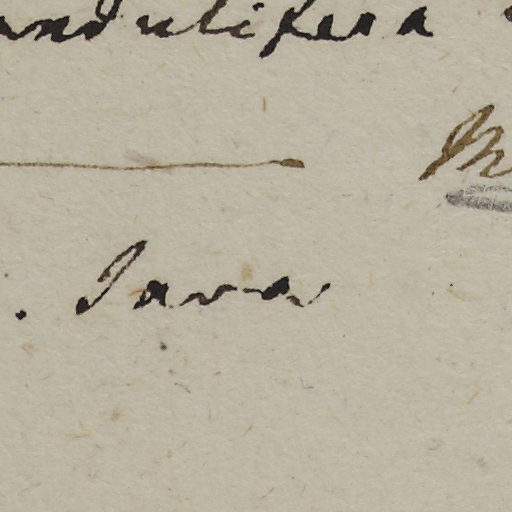 andulifera
. Java